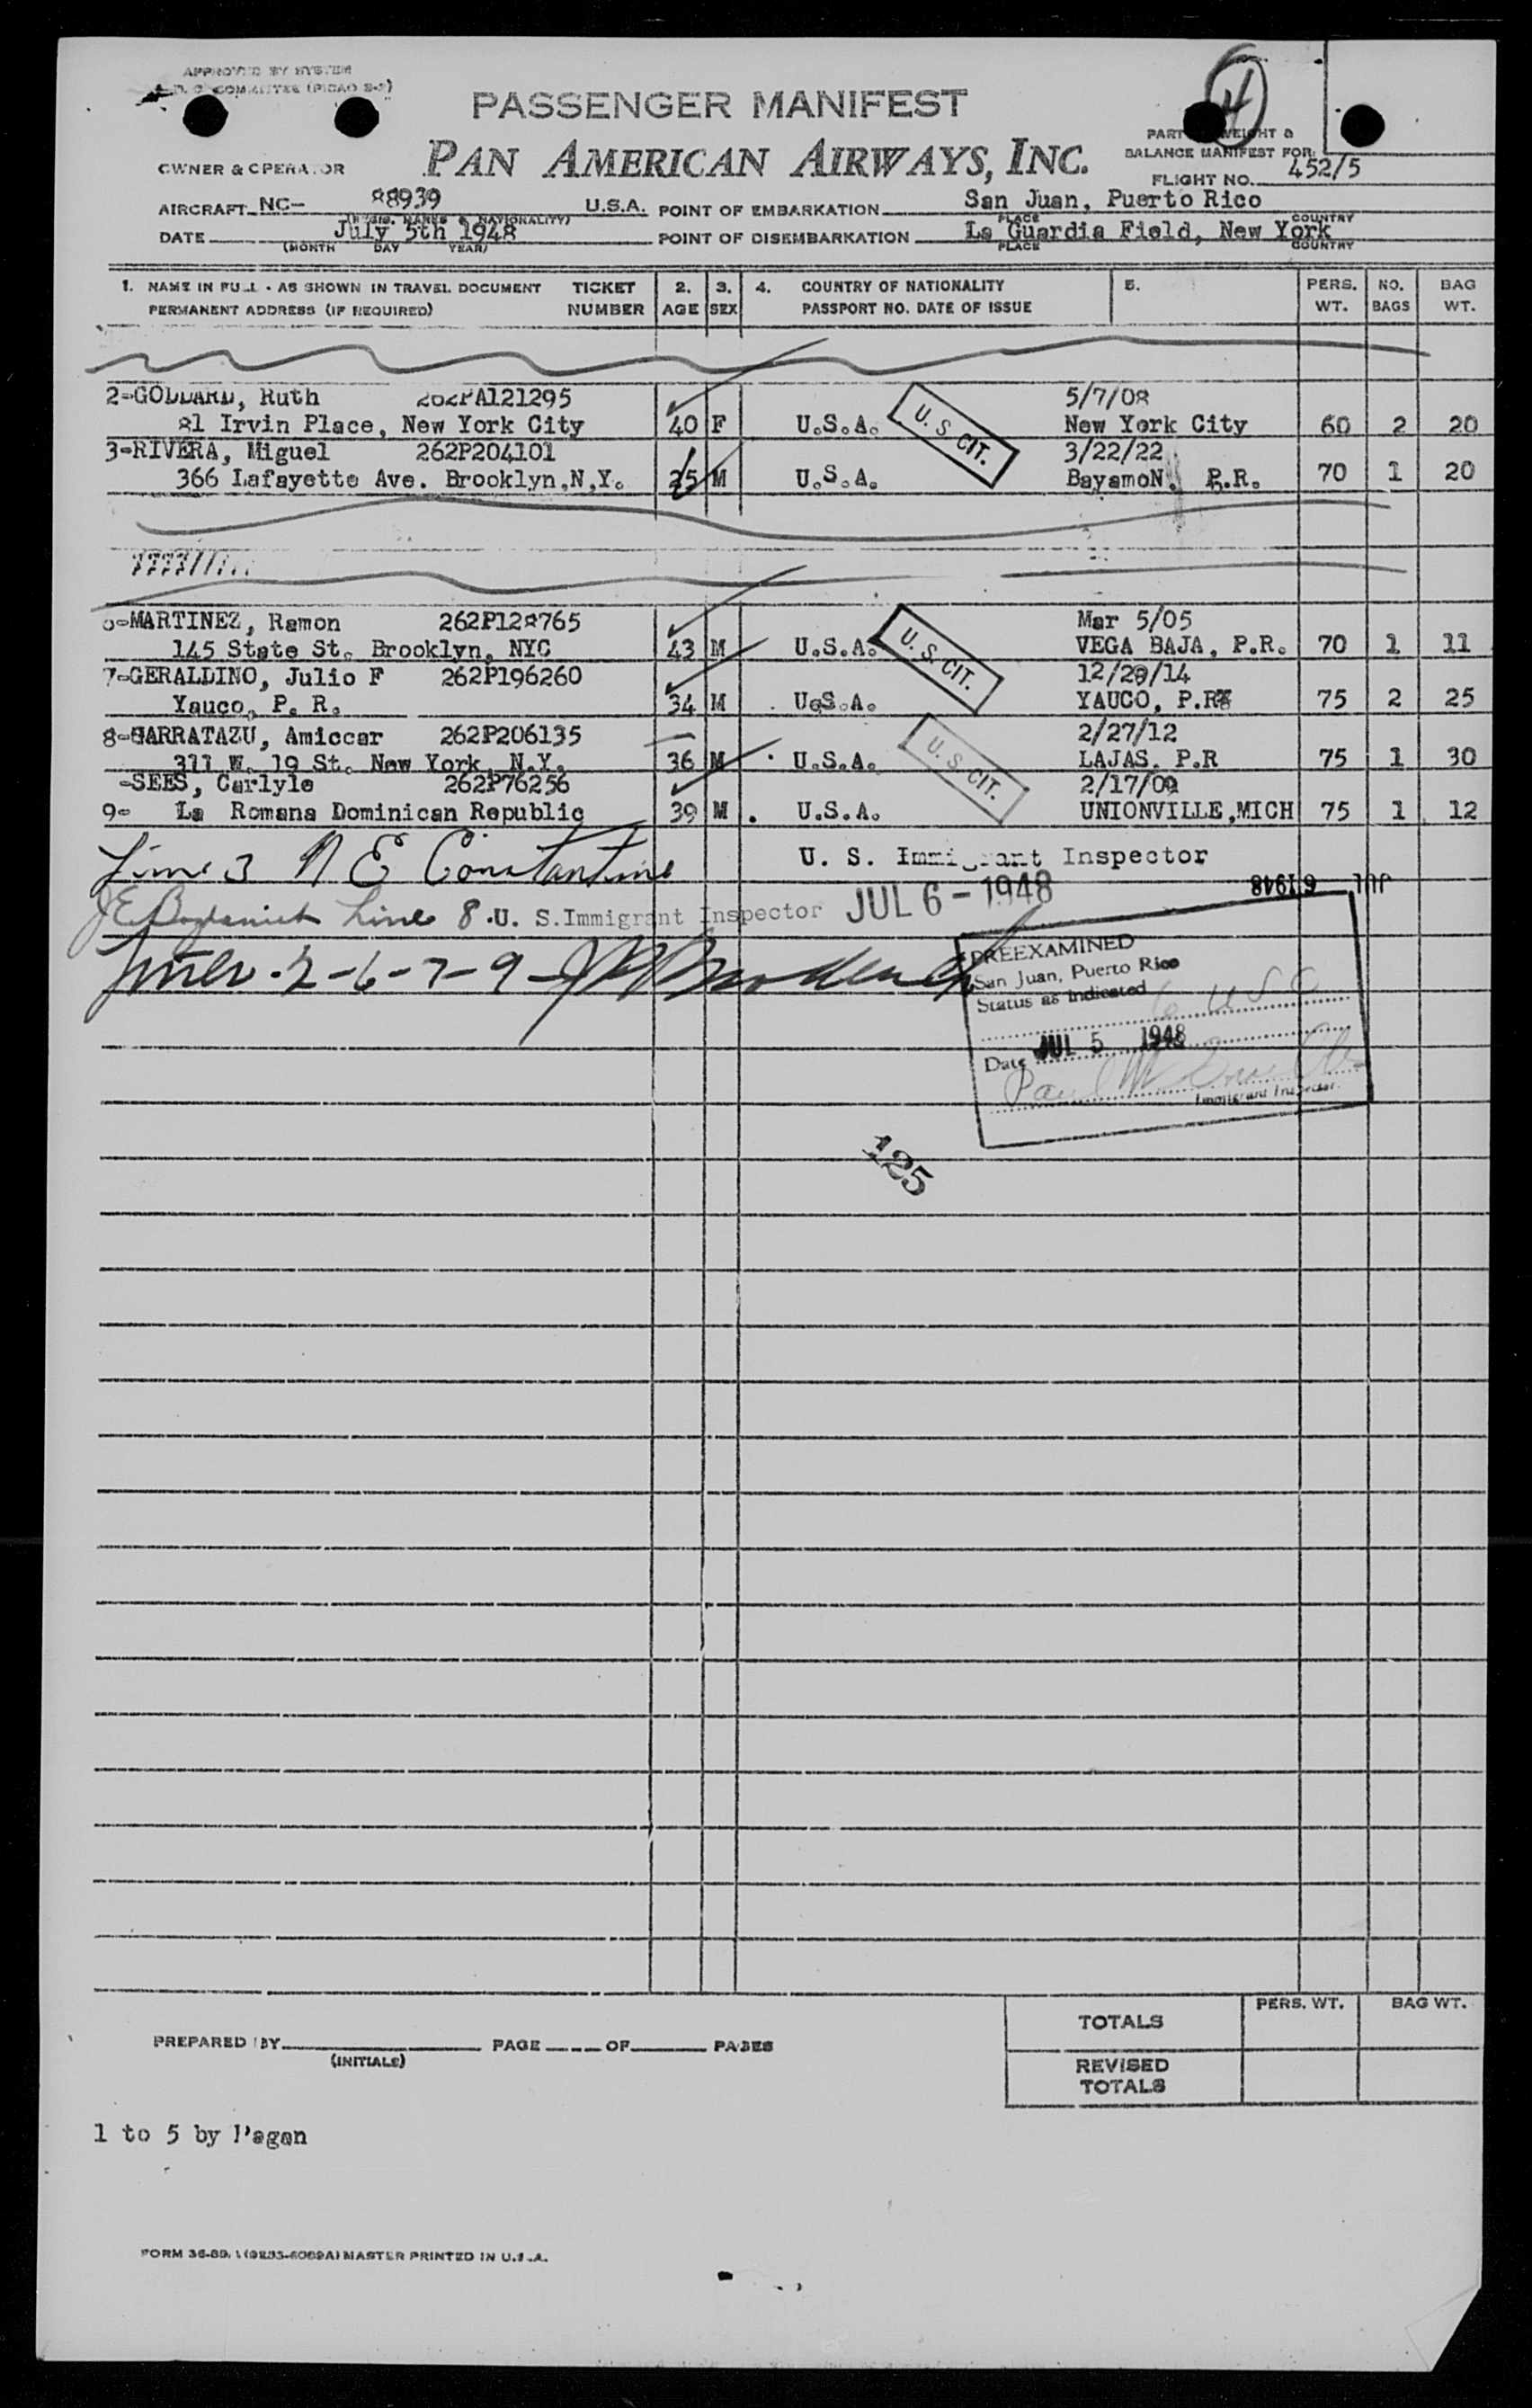 APPROVED BY SYSTEM
COMMITTEE (PICAO S-3)
PASSENGER MANIFEST
4
PART WEIGHT &
BALANCE MANIFEST FOR:
OWNER & OPERATOR PAN AMERICAN AIRWAYS, INC.
FLIGHT NO. 452/5
AIRCRAFT NC- 88939 U.S.A. POINT OF EMBARKATION San Juan, Puerto Rico
(REGIS. MARKS & NATIONALITY) PLACE COUNTRY
DATE July 5th 1948 POINT OF DISEMBARKATION La Guardia Field, New York
(MONTH DAY YEAR) PLACE COUNTRY
1. NAME IN FULL - AS SHOWN IN TRAVEL DOCUMENT TICKET 2. 3. 4. COUNTRY OF NATIONALITY 5. PERS. NO. BAG
PERMANENT ADDRESS (IF REQUIRED) NUMBER AGE SEX PASSPORT NO. DATE OF ISSUE WT. BAGS WT.
2-GODDARD, Ruth 262PA121295 5/7/08
81 Irvin Place, New York City 40 F U.S.A. U. S CIT. New York City 60 2 20
3-RIVERA, Miguel 262P204101 3/22/22
366 Lafayette Ave. Brooklyn,N,Y. 25 M U.S.A. BayamoN. P.R. 70 1 20
6-MARTINEZ, Ramon 262P128765 Mar 5/05
145 State St. Brooklyn, NYC 43 M U.S.A. U. S. CIT. VEGA BAJA, P.R. 70 1 11
7-GERALDINO, Julio F 262P196260 12/20/14
Yauco, P. R. 34 M U.S.A. YAUCO, P.R. 75 2 25
8-SARRATAZU, Amiccar 262P206135 2/27/12
311 W. 19 St. New York, N.Y. 36 M U.S.A. U. S CIT. LAJAS, P.R 75 1 30
-SEES, Carlyle 262P76256 2/17/09
9- La Romana Dominican Republic 39 M U.S.A. UNIONVILLE,MICH 75 1 12
Line 3 N E Constantine U. S. Immigrant Inspector
JUL 6 - 1948 JUL 6 1948
Line 8 U. S. Immigrant Inspector
Lines 2-6-7-9-
PREEXAMINED
San Juan, Puerto Rico
Status as Indicated
6 USC
Date JUL 5 1948
Paul M
Immigrant Inspector
125
PERS. WT. BAG WT.
TOTALS
PREPARED BY PAGE OF PAGES
(INITIALS)
REVISED
TOTALS
1 to 5 by Pagan
MASTER PRINTED IN U.S.A.